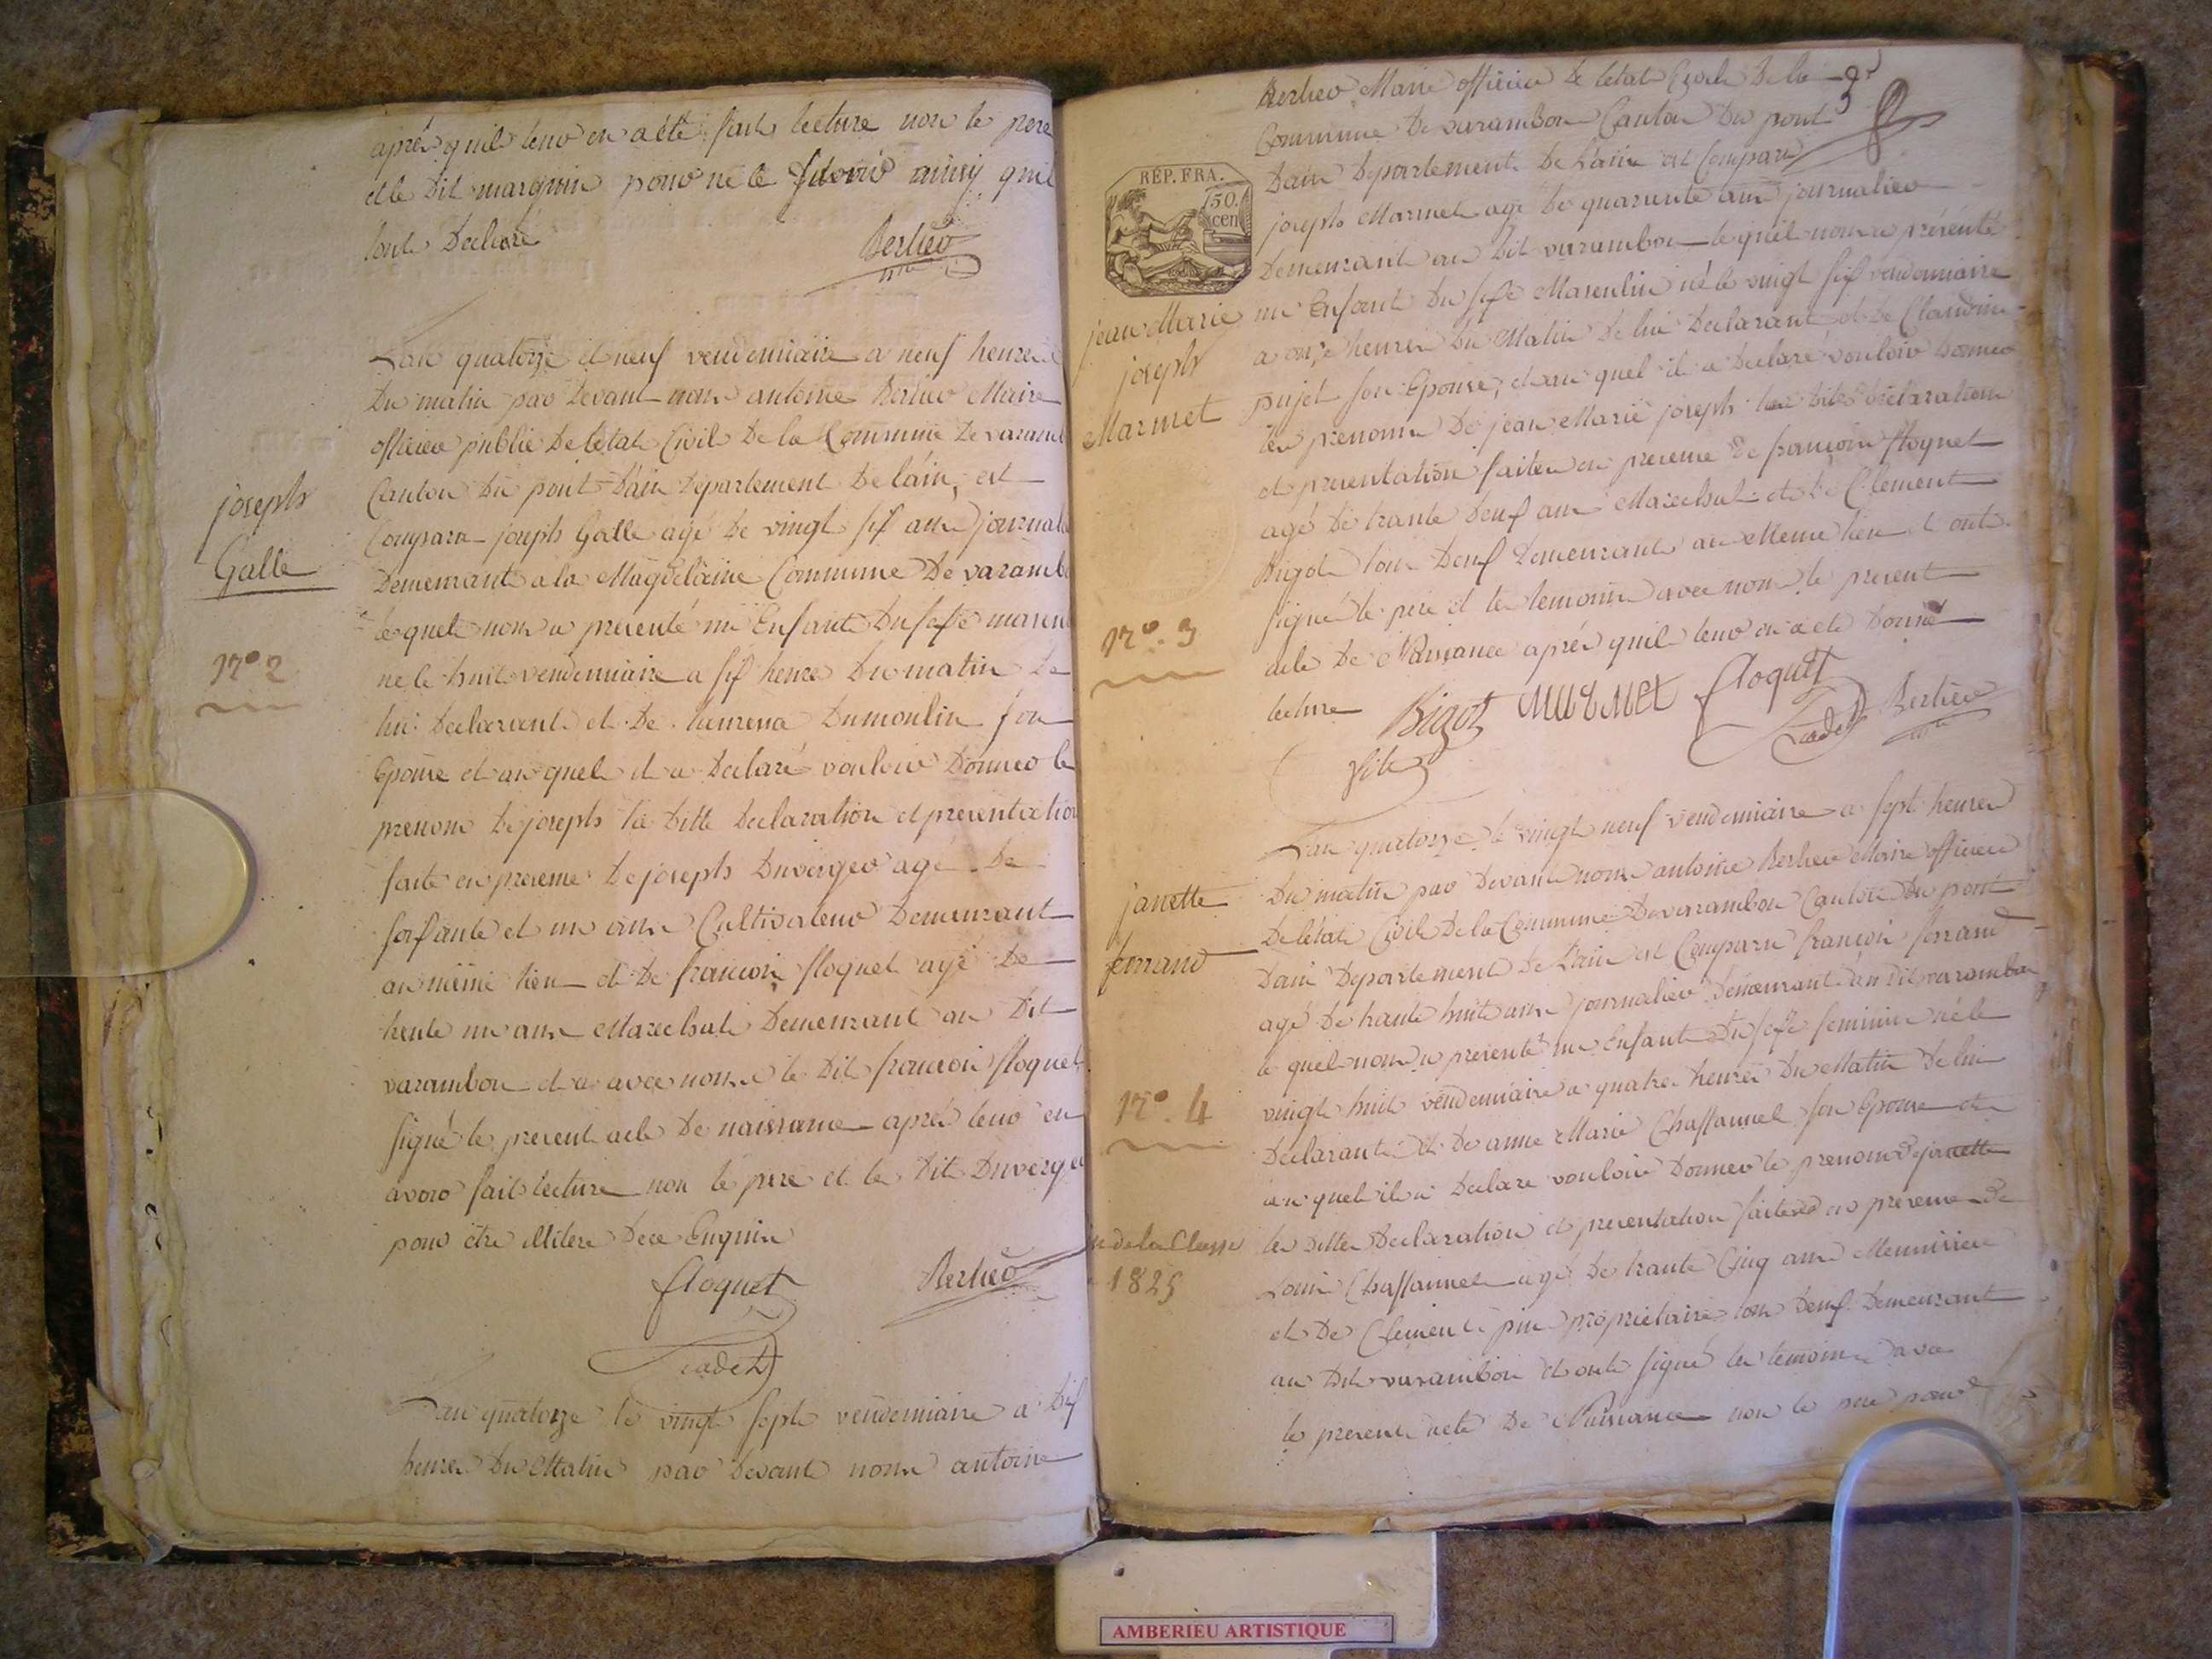 après quil leur en a été fait lecture non le pere
et le dit marguin pour ne le savoir ainsy quil
lont declaré
Berlier
mre
joseph
Galle
N° 2
Lan quatorze et neuf vendemiaire a neuf heures
du matin par devant nous antoine Berlier Maire
officier public de letat Civil de la Commune de varamb
Canton du pont dain departement de láin, est
Comparu joseph Galle agé de vingt six ans journal
demeurant a la Magdelaine Commune de varamb
le quel nous a presenté un Enfant du sexe mascu
né le huit vendemiaire a six heures du matin de
lui declarant et de dumoulin son
Epouse et au quel il a declaré vouloir donner le
prenom de joseph la ditte declaration et presentation
faite en presence de joseph duverger agé de
soixante et un ans Cultivateur demeurant
au même lieu et de francois floquet agé de
trente un ans Marechal demeurant au dit
varambon et a avec nous le dit francois floquet
signé le present acte de naissance après leur en
avoir fait lecture non le pere et le dit duverger
pour être illitere de ce Enquis
floquet
Berlier
Cadet
Lan quatorze le vingt sept vendemiaire a dix
heures du Matin par devant nous antoine
3
Berlier Maire officier de letat Civil de la
Commune de varambon Canton du pont
dain departement de Láin est Comparu
REP. FRA.
50.
cen
joseph Marmet agé de quarante ans journalier
demeurant au dit varambon le quel nous a présenté
jean Marie
joseph
Marmet
un Enfant du sexe Masculin né le vingt six vendemiaire
a onze heures du Matin de lui declarant et de Claudine
pujet son Epouse, et au quel il a declaré vouloir donner
les prenoms de jean Marie joseph les dites déclaration
et presentation faites en presence de francois floquet
agé de trante deux ans Marechal et de Clement
Bigot tous deux demeurants au Meme lieu et ont
N°. 3
signé le pere et les temoins avec nous le present
acte de Naissance après quil leur en a été donné
lecture
Bigot
MARMET
floquet
Cadet
Berlier
mre
janette
ferrand
Lan quatorze le vingt neuf vendemiaire a sept heures
du matin par devant nous antoine Berlier Maire officier
de létat Civil de la Commune de varambon Canton du pont
dain departement de Láin est Comparu francois ferrand
agé de trante huit ans journalier demeurant au dit varambon
le quel nous a presenté un Enfant du sexe feminin né le
N°. 4
vingt huit vendemiaire a quatre heures du Matin de lui
declarant et de anne Marie Chassannel son Epouse et
au quel il a declare vouloir donner le prenom de janette
de la Classe
1825
les dittes declaration et presentation faites en presence de
Louis Chassannel agé de trante Cinq ans Menuisier
et de Clement pin propriétaire tous deux demeurant
au dit varambon et ont signé les temoins avec
le present acte de Naissance non le pere pour
AMBERIEU ARTISTIQUE